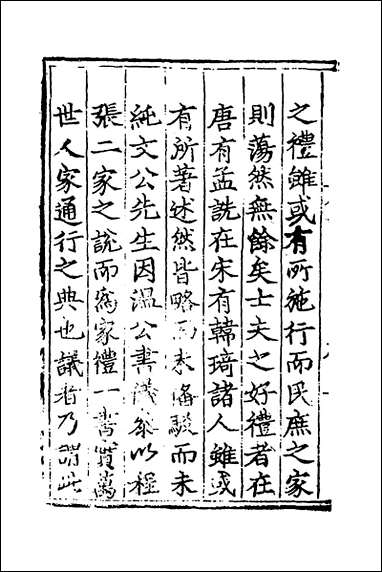 之禮雖或有所施行而民庶之家
則蕩然無餘矣士夫之好禮者在
唐有孟詵在宋有韓琦諸人雖或
有所著述然皆略而未備駁而未
純文公先生因溫公書儀參以程
張二家之說而爲家禮一書實萬
世人家通行之典也議者乃謂此